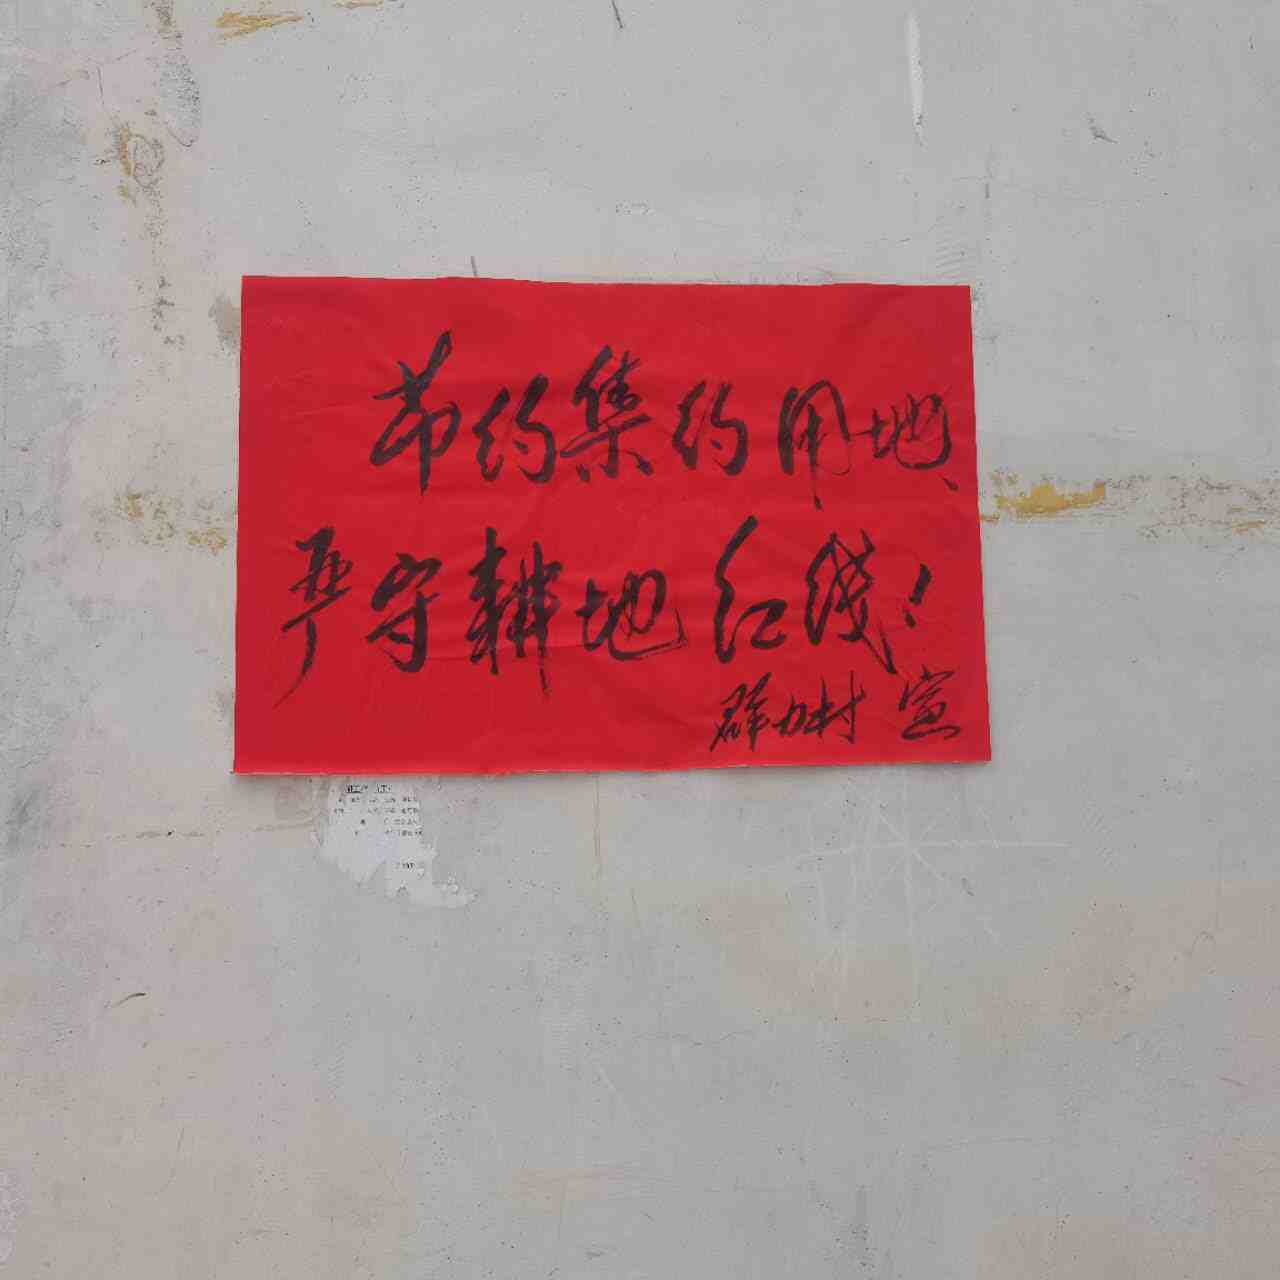 节约集约用地、
严守耕地红线！
群力村 宣